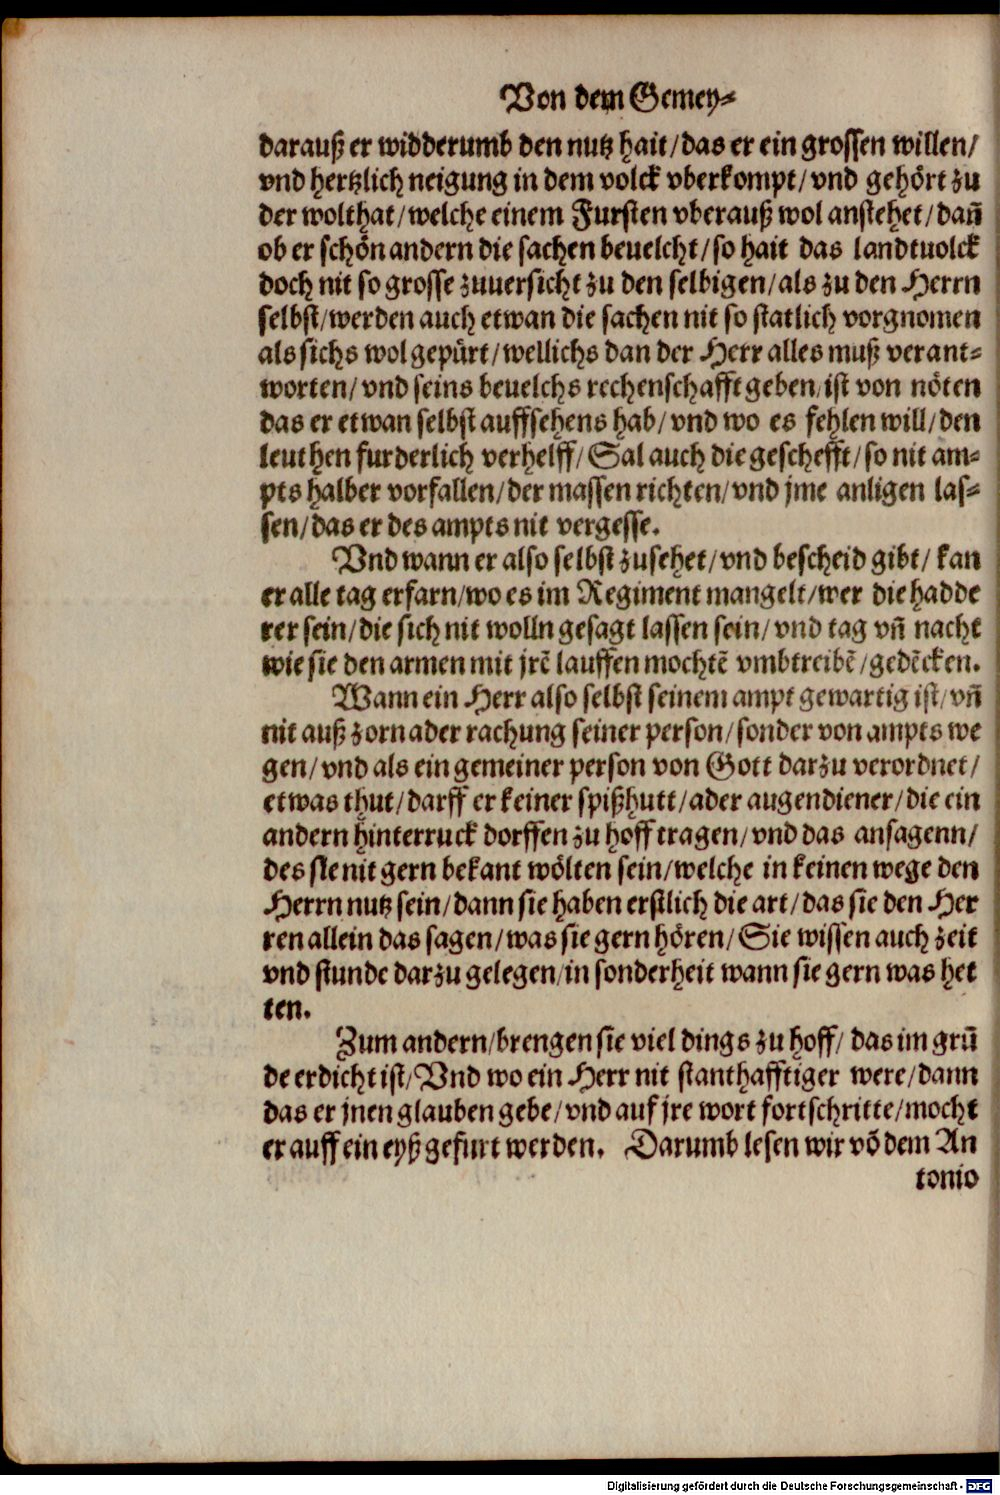 Von dem Gemey⸗
darauß er widderumb den nutz hait/das er ein grossen willen/
vnd hertzlich neigung in dem volck vberkompt/vnd gehört zu
der wolthat/welche einem Fursten vberauß wol anstehet/dañ
ob er schön andern die sachen beuelcht/so hait das landtuolck
doch nit so grosse zuuersicht zu den selbigen/als zu den Herrn
selbst/werden auch etwan die sachen nit so statlich vorgnomen
als sichs wol gepürt/wellichs dan der Herr alles muß verant⸗
worten/vnd seins beuelchs rechenschafft geben/ist von nöten
das er etwan selbst auffsehens hab/vnd wo es fehlen will/den
leuthen furderlich verhelff/Sal auch die geschefft/so nit am⸗
pts halber vorfallen/der massen richten/vnd jme anligen las⸗
sen/das er des ampts nit vergesse.
Vnd wann er also selbst zusehet/vnd bescheid gibt/kan
er alle tag erfarn/wo es im Regiment mangelt/wer die hadde
rer sein/die sich nit wolln gesagt lassen sein/vnd tag vñ nacht
wie sie den armen mit jrē lauffen mochtē vmbtreibē/gedēcken.
Wann ein Herr also selbst seinem ampt gewartig ist/vñ
nit auß zorn ader rachung seiner person/sonder von ampts we
gen/vnd als ein gemeiner person von Gott darzu verordnet/
etwas thut/darff er keiner spißhutt/ader augendiener/die ein
andern hinterruck dorffen zu hoff tragen/vnd das ansagenn/
des sie nit gern bekant wölten sein/welche in keinen wege den
Herrn nutz sein/dann sie haben erstlich die art/das sie den Her
ren allein das sagen/was sie gern hören/Sie wissen auch zeit
vnd stunde darzu gelegen/in sonderheit wann sie gern was het
ten.
Zum andern/brengen sie viel dings zu hoff/das im grũ
de erdicht ist/Vnd wo ein Herr nit stanthafftiger were/dann
das er jnen glauben gebe/vnd auf jre wort fortschritte/mocht
er auff ein eyß gefurt werden. Darumb lesen wir võ dem An
tonio
Digitalisierung gefördert durch die Deutsche Forschungsgemeinschaft - DFG